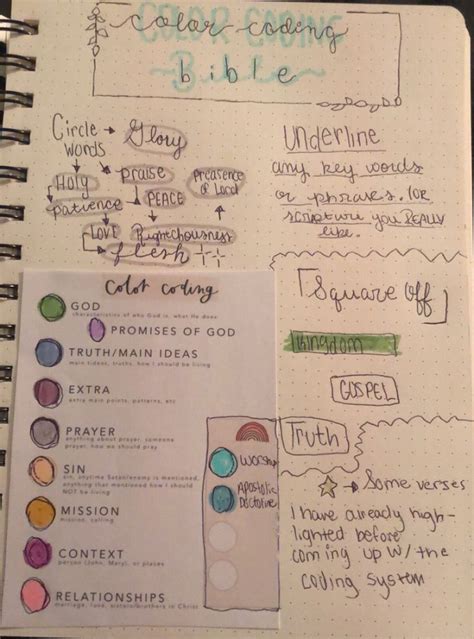 color-coding
COLOR CODING
bible
Circle words → Glory
Holy
praise
presence of Lord
patience
PEACE
LOVE
Rightchousness
flesh
Underline
any key words
or phrases. (OR
scripture you REALLY
like.
Square off
Kingdom
GOSPEL
Truth
Some verses
I have already high-
lighted before
coming up w/ the
coding system
Color coding
GOD
characteristics of who God is, what He does
PROMISES OF GOD
TRUTH/MAIN IDEAS
main ideas, truths, how I should be living
EXTRA
extra main points, patterns, etc
PRAYER
anything about prayer, someone
prayer, how we should pray
SIN
sin, anytime Satan/enemy is mentioned,
anything that mentioned how I should
NOT be living
MISSION
mission, calling
CONTEXT
person (John, Mary), or places
RELATIONSHIPS
marriage, love, sisters/brothers in Christ
Worship
Apostolic
Doctorine